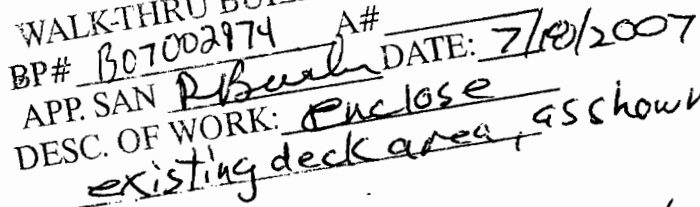 WALK-THRU
BP# B07002974 A#
APP. SAN DATE: 7/18/2007
DESC. OF WORK: enclose
existing deck area, as shown